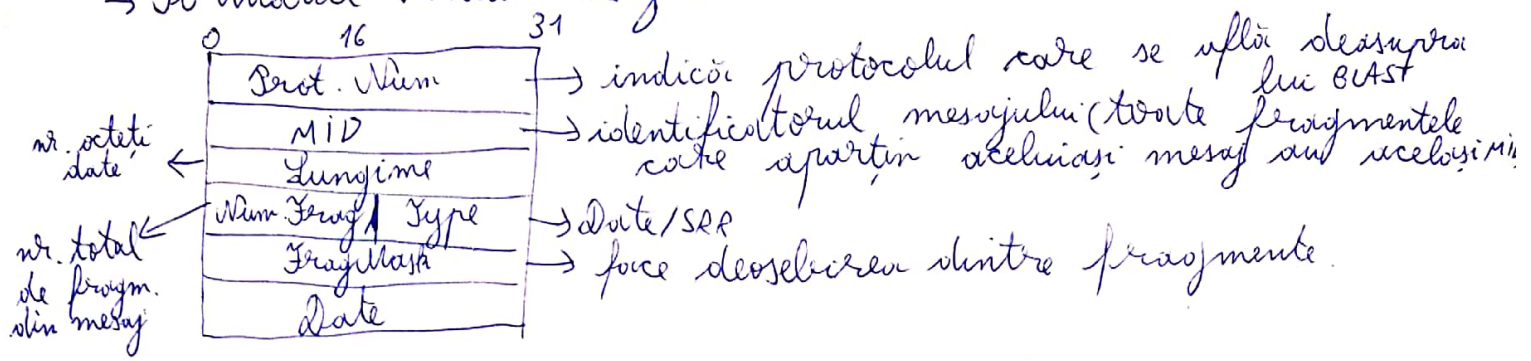 0 16 31
Prot. Num → indică protocolul care se află deasupra
lui BLAST
MID → identificatorul mesajului (toate fragmentele
care aparțin aceluiași mesaj au același MID
nr. octeți
date ← Lungime
Num Frag | Type → Date/SRR
nr. total
de fragm.
din mesaj
FragMask → face deosebirea dintre fragmente.
Date